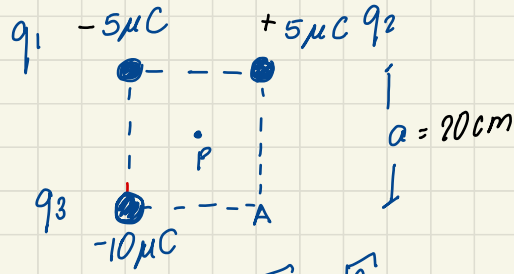 q1 -5μC +5μC q2
a = 20cm
P
q3 A
-10μC